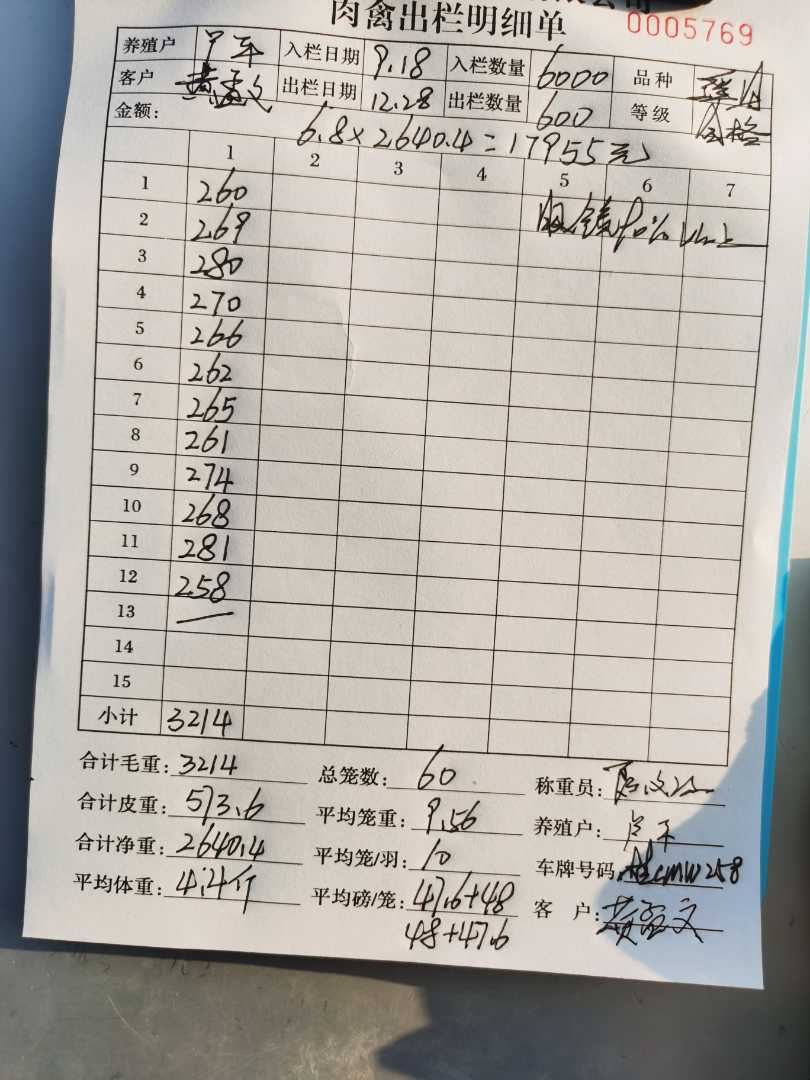 肉禽出栏明细单 0005769
养殖户 入栏日期 9.18 入栏数量 6000 品种
客户 出栏日期 12.28 出栏数量 600 等级 合格
金额: 6.8×2640.4=17955元
1 2 3 4 5 6 7
1 260
2 269 90%以上
3 280
4 270
5 266
6 262
7 265
8 261
9 274
10 268
11 281
12 258
13 —
14
15
小计 3214
合计毛重: 3214 总笼数: 60 称重员:
合计皮重: 573.6 平均笼重: 9.56 养殖户:
合计净重: 2640.4 平均笼/羽: 10 车牌号码: MW258
平均体重: 4.4斤 平均磅/笼: 47.6+48 客 户:
48+47.6